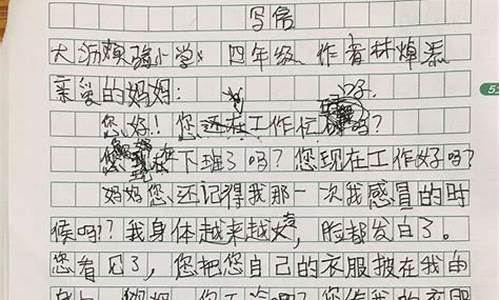 写信
大沥实验小学 四年级 作者林焯
亲爱的妈妈:
您好!!您还在工作忙吗?
您现在下班了吗?您现在工作好吗?
妈妈您还记得我那一次我感冒的时
候吗?我身体越来越,脸都发白了。
您看见了,您把您自己的衣服披在我的